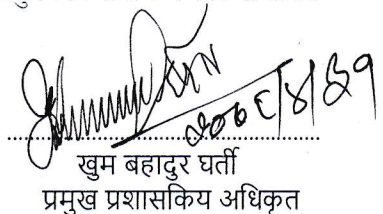 २०७८/४/३१
..........................................
खुम बहादुर घर्ती
प्रमुख प्रशासकिय अधिकृत